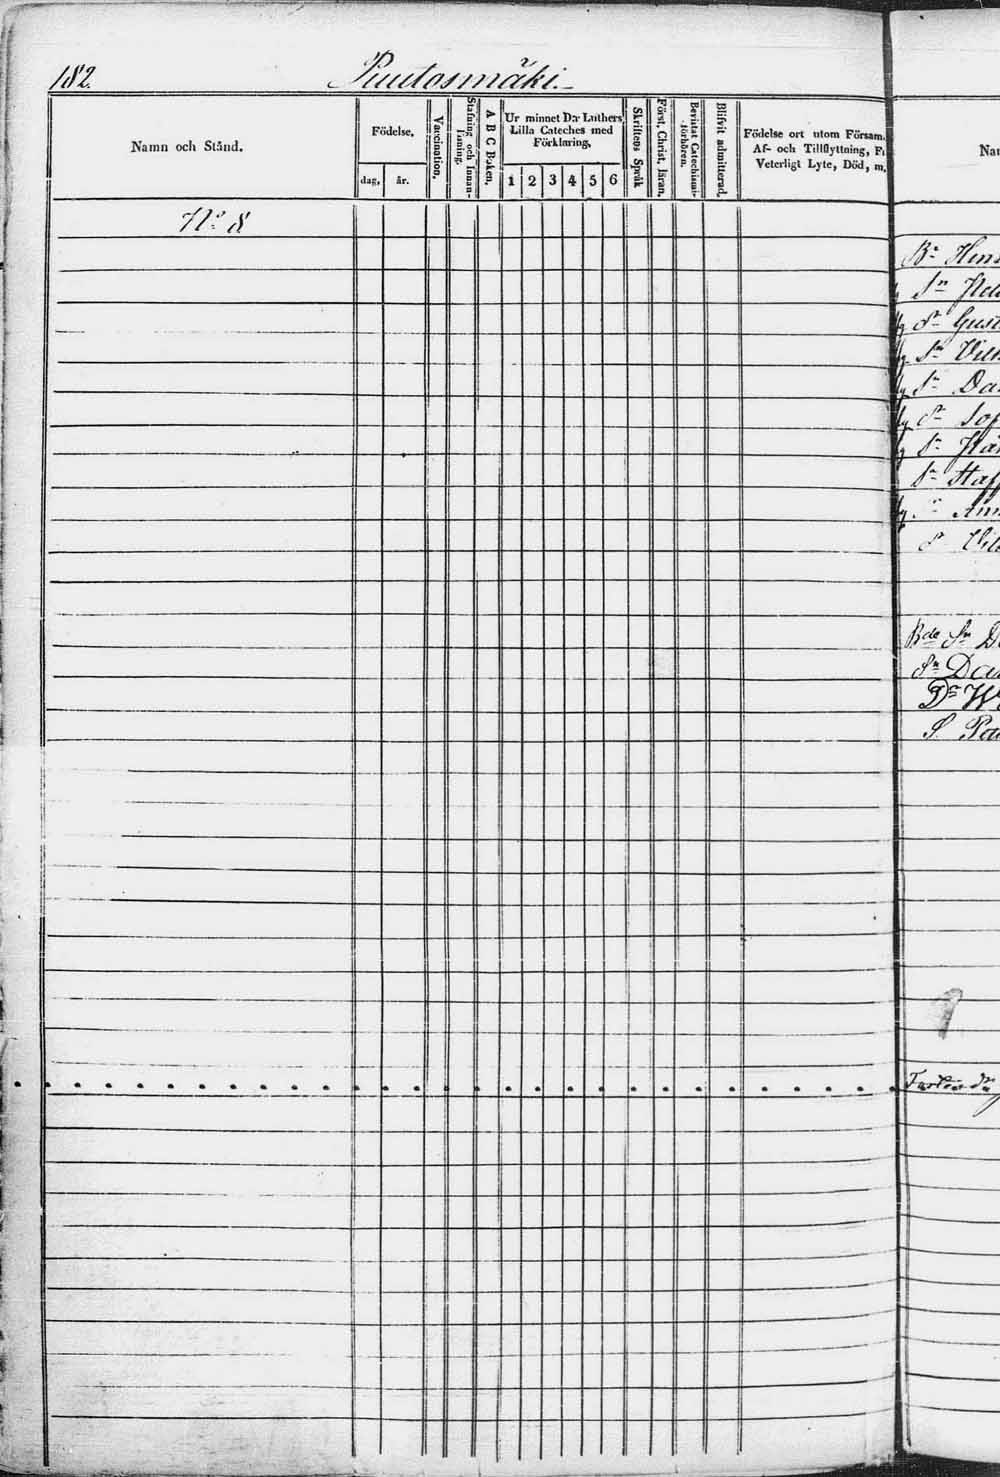 182.
Puutosmäki.
Namn och Stånd.
Födelse,
dag, år.
Vaccination.
Stafning och Innan-
läsning.
A B C Boken.
Ur minnet D:r Luthers
Lilla Cateches med
Förklaring,
1 2 3 4 5 6
Skriftens Språk
Först. Christ. läran.
Bevistat Catechismi-
förhören.
Blifvit admitterad.
Födelse ort utom Försam.
Af- och Tillflyttning, F
Veterligt Lyte, Död, m.
N:o 8.
Na
Gust
Vilh
Da
Sop
Staf
Da
Da